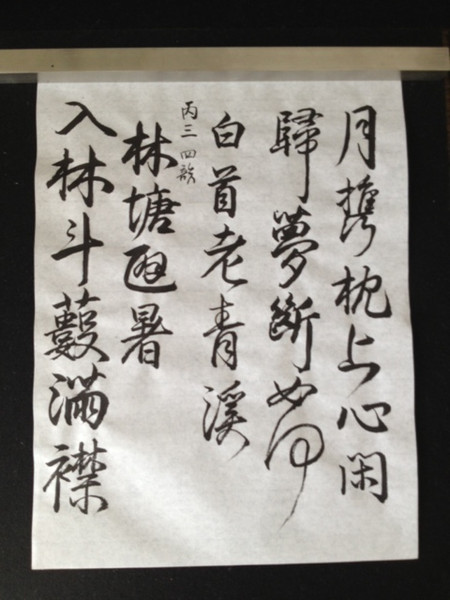 月携枕上心閑
歸夢斷如何
白首老青溪
丙三
林塘避暑
入林斗藪滿襟